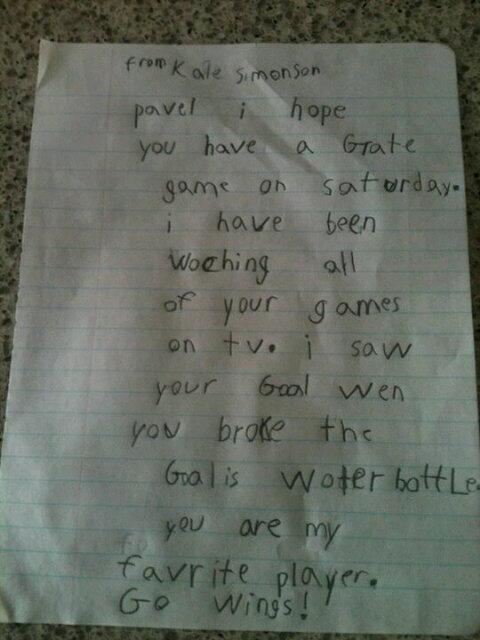 from Kale Simonson
pavel i hope
you have a Grate
game on saturday.
i have been
woching all
of your games
on tv. i saw
your Goal wen
you broke the
Goalis woter bottle
you are my
favrite player.
Go wings!